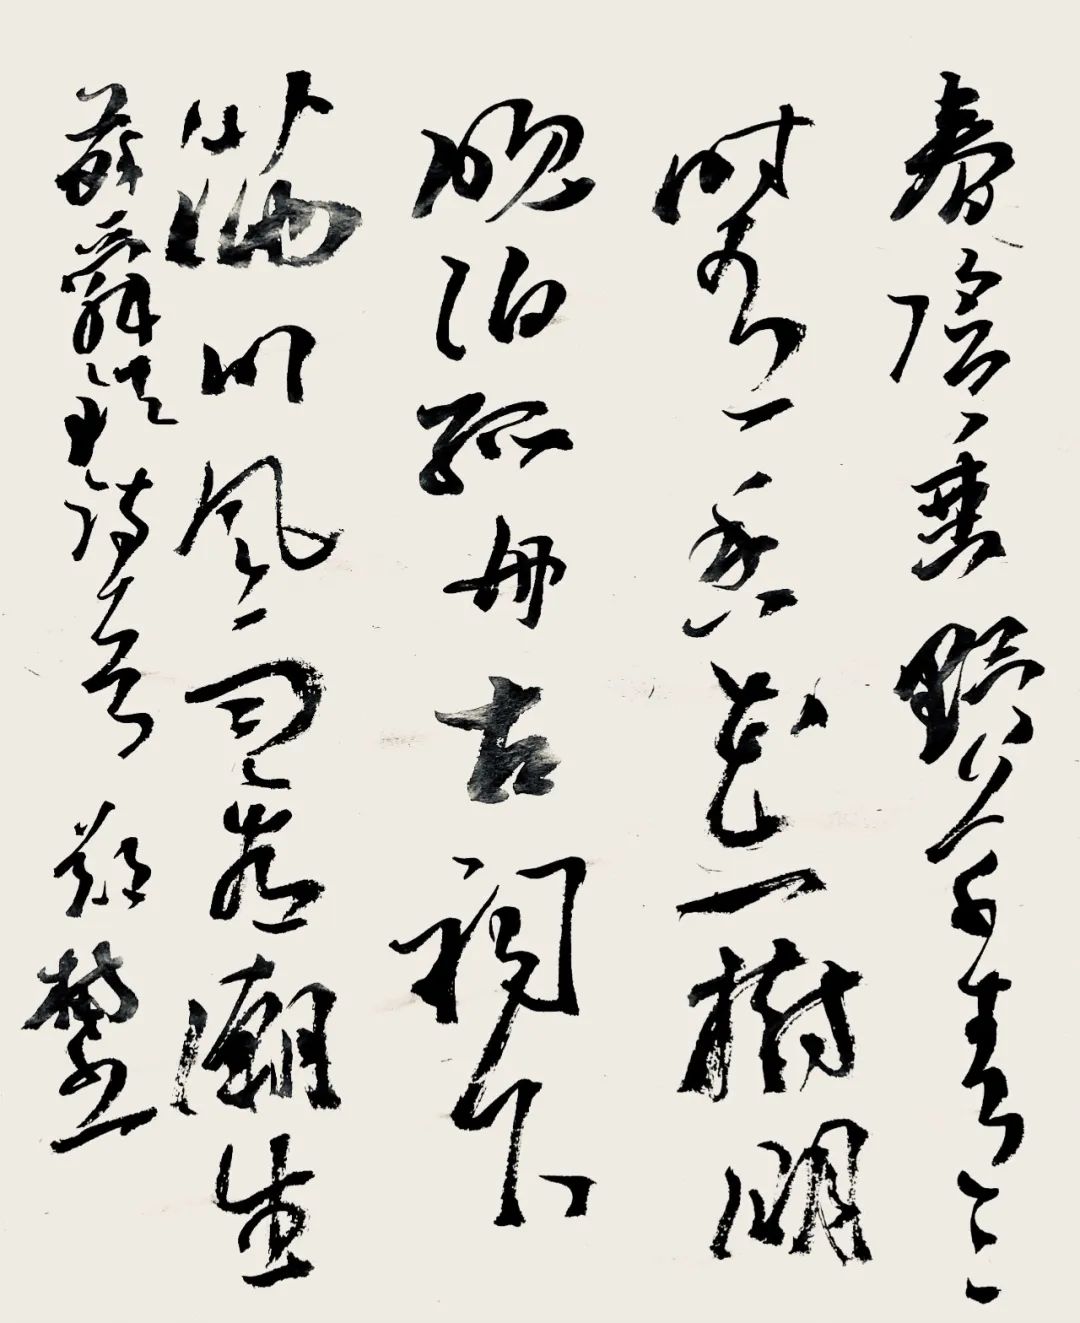 春陰垂野草青〻
時有幽花一樹明
晚泊孤舟古祠下
滿川風雨看潮生
蘇舜欽詩